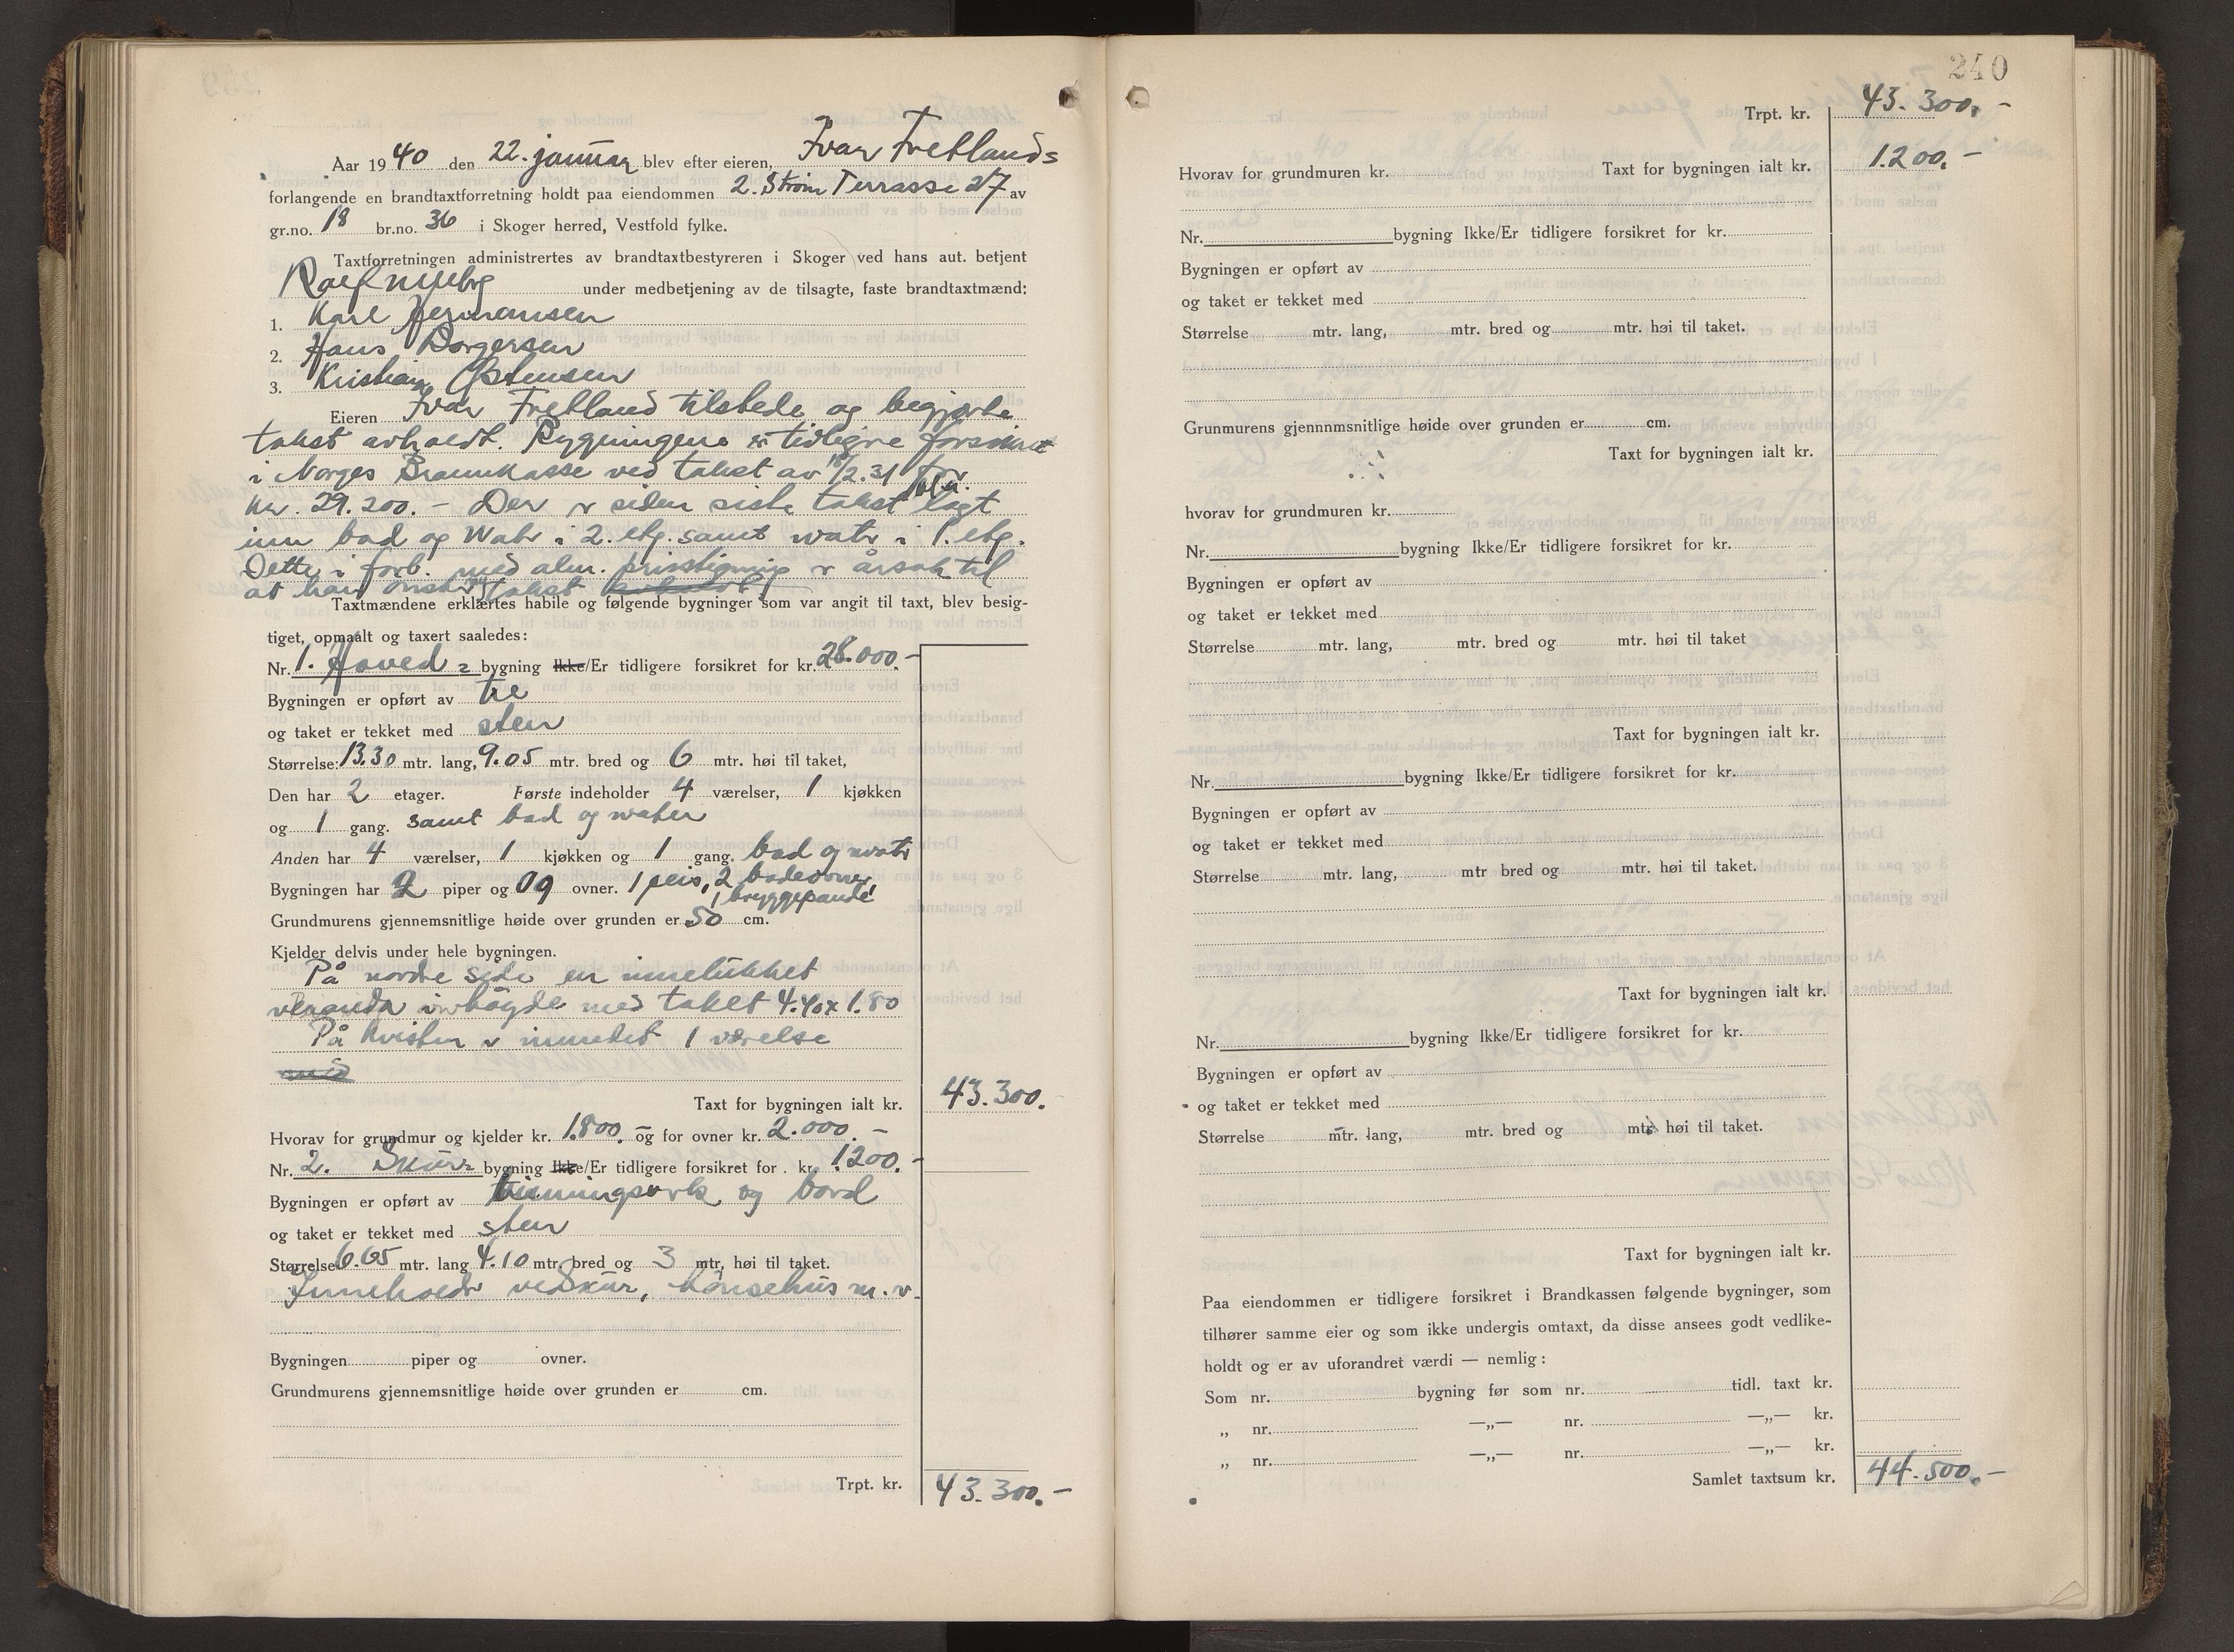 Aar 1940 den 22. januar blev efter eieren, Ivar Fretlands
forlangende en brandtaxtforretning holdt paa eiendommen 2. Strøm Terrasse 27 av
gr.no. 18 br.no. 36 i Skoger herred, Vestfold fylke.
Taxtforretningen administrertes av brandtaxtbestyreren i Skoger ved hans aut. betjent
under medbetjening av de tilsagte, faste brandtaxtmænd:
1. Karl Hermansen
2. Hans Borgersen
3. Kristian Østensen
Eieren Ivar Fretland tilstede og begjærte
takst avholdt. Bygningene er tidligre forsikret
i Norges Brannkasse ved takst av 18/2.31 for
kr. 29.200.- Der er siden siste takst bl.a. lagt
inn bad og Water i 2. etg. samt water i 1. etg.
Dette i forb. med alm. prisstigning er årsak til
at han ønsker ny takst
Taxtmændene erklærtes habile og følgende bygninger som var angit til taxt, blev besig-
tiget, opmaalt og taxert saaledes:
Nr. 1. Hoved = bygning Ikke/Er tidligere forsikret for kr. 28.000.-
Bygningen er opført av tre
og taket er tekket med sten
Størrelse: 13.30 mtr. lang, 9.05 mtr. bred og 6 mtr. høi til taket,
Den har 2 etager. Første indeholder 4 værelser, 1 kjøkken
og 1 gang. samt bad og water
Anden har 4 værelser, 1 kjøkken og 1 gang. bad og water
Bygningen har 2 piper og 09 ovner. 1 peis, 2 badeovner,
1 bryggepande
Grundmurens gjennemsnitlige høide over grunden er 50 cm.
Kjelder delvis under hele bygningen.
På nordre side en innelukket
veranda i høgde med taket 4.40 x 1.80
På kvisten er innredet 1 værelse
med
Taxt for bygningen ialt kr. 43.300.
Hvorav for grundmur og kjelder kr. 1.800.- og for ovner kr. 2.000.-
Nr. 2. Skur= bygning Ikke/Er tidligere forsikret for . kr. 1.200.-
Bygningen er opført av binningsverk og bord
og taket er tekket med sten
Størrelse 6.65 mtr. lang 4.10 mtr. bred og 3 mtr, høi til taket.
Inneholdr vedskur, hønsehus m.v.
Bygningen piper og ovner.
Grundmurens gjennemsnitlige høide over grunden er cm.
Trpt. kr. 43.300.-
240
Trpt. kr. 43.300.-
Hvorav for grundmuren kr. Taxt for bygningen ialt kr. 1.200.-
Nr. bygning Ikke/Er tidligere forsikret for kr.
Bygningen er opført av
og taket er tekket med
Størrelse mtr. lang, mtr. bred og mtr. høi til taket.
Grunmurens gjennnmsnitlige høide over grunden er cm.
Taxt for bygningen ialt kr.
hvorav for grundmuren kr.
Nr. bygning Ikke/Er tidligere forsikret for kr.
Bygningen er opført av
og taket er tekket med
Størrelse mtr. lang, mtr. bred og mtr. høi til taket
Taxt for bygningen ialt kr.
Nr. bygning Ikke/Er tidligere forsikret for kr.
Bygningen er opført av
og taket er tekket med
Størrelse mtr. lang, mtr bred og mtr. høi til taket.
Taxt for bygningen ialt kr.
Nr. bygning Ikke/Er tidligere forsikret for kr.
Bygningen er opført av
og taket er tekket med
Størrelse mtr. lang, mtr. bred og mtr. høi til taket.
Taxt for bygningen ialt kr.
Paa eiendommen er tidligere forsikret i Brandkassen følgende bygninger, som
tilhører samme eier og som ikke undergis omtaxt, da disse ansees godt vedlike-
holdt og er av uforandret værdi — nemlig:
Som nr. bygning før som nr. tidl. taxt kr.
„ nr. —„— nr. —„— kr.
„ nr. —„— nr. —„— kr.
Samlet taxtsum kr. 44.500.-